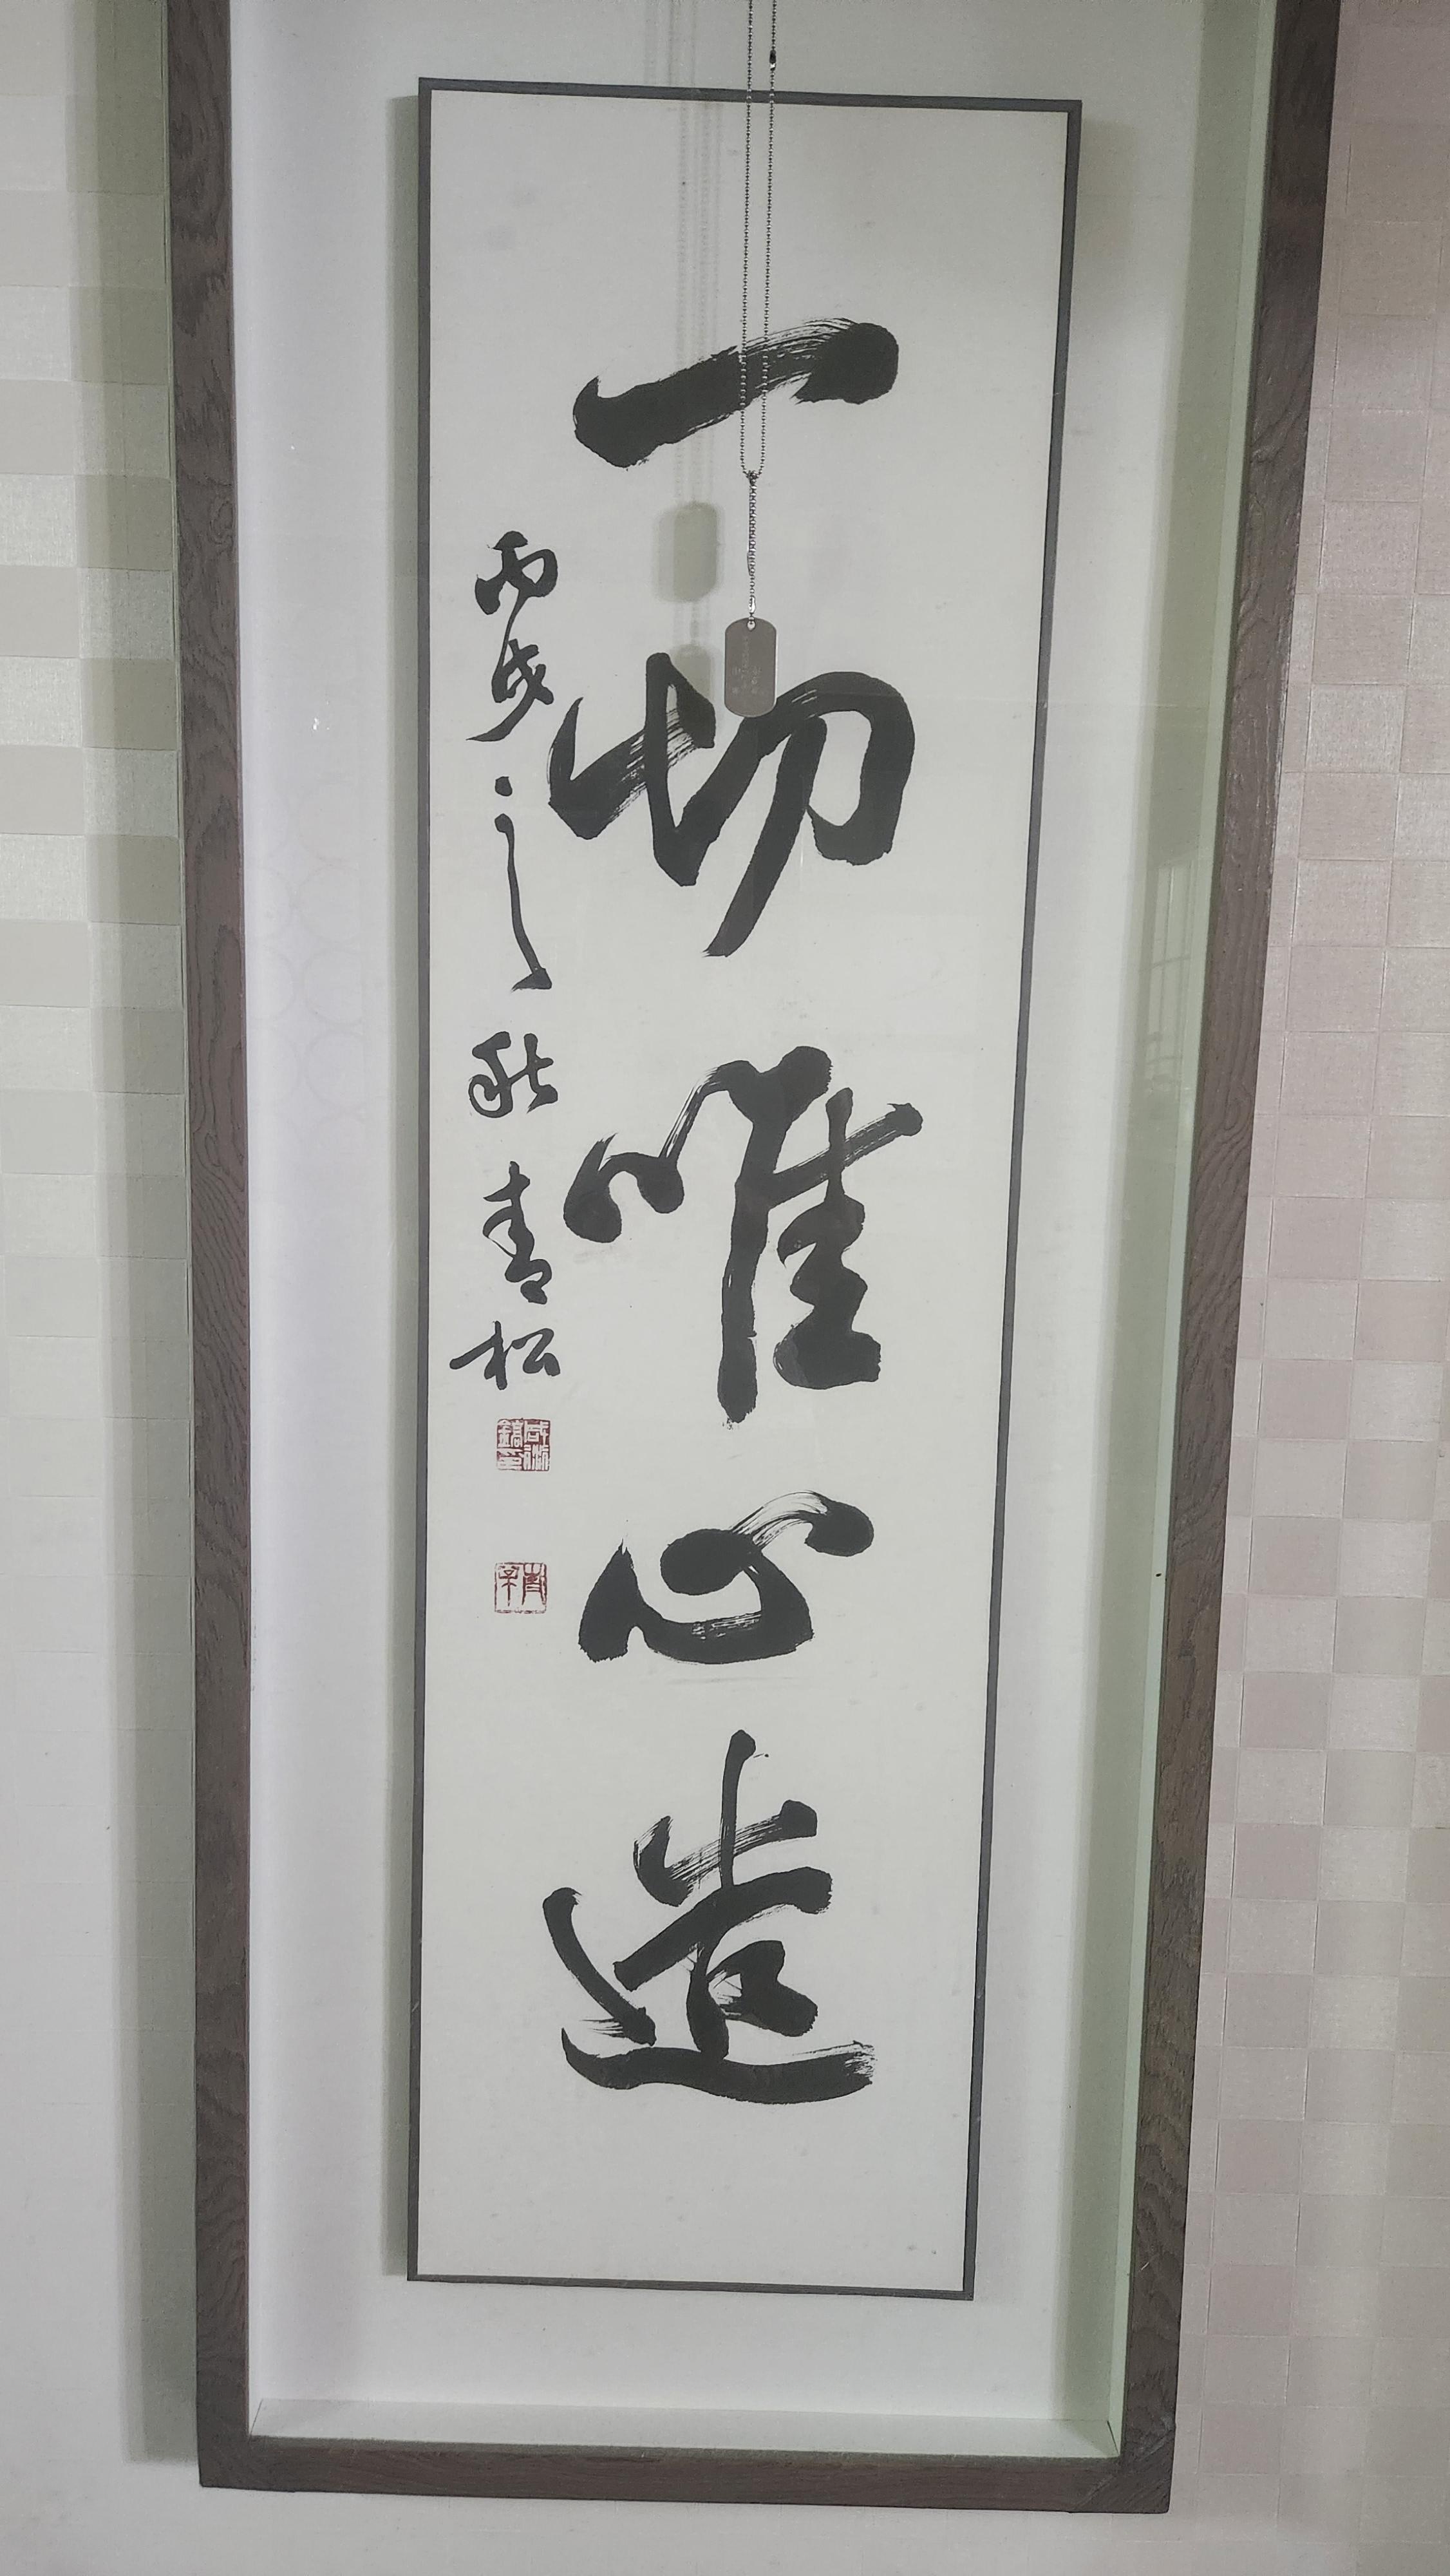 一切唯心造
丙戌之秋 青松